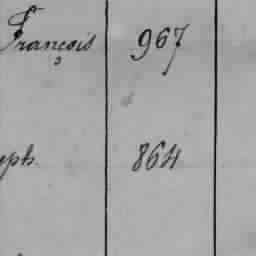 François 967
yph 864